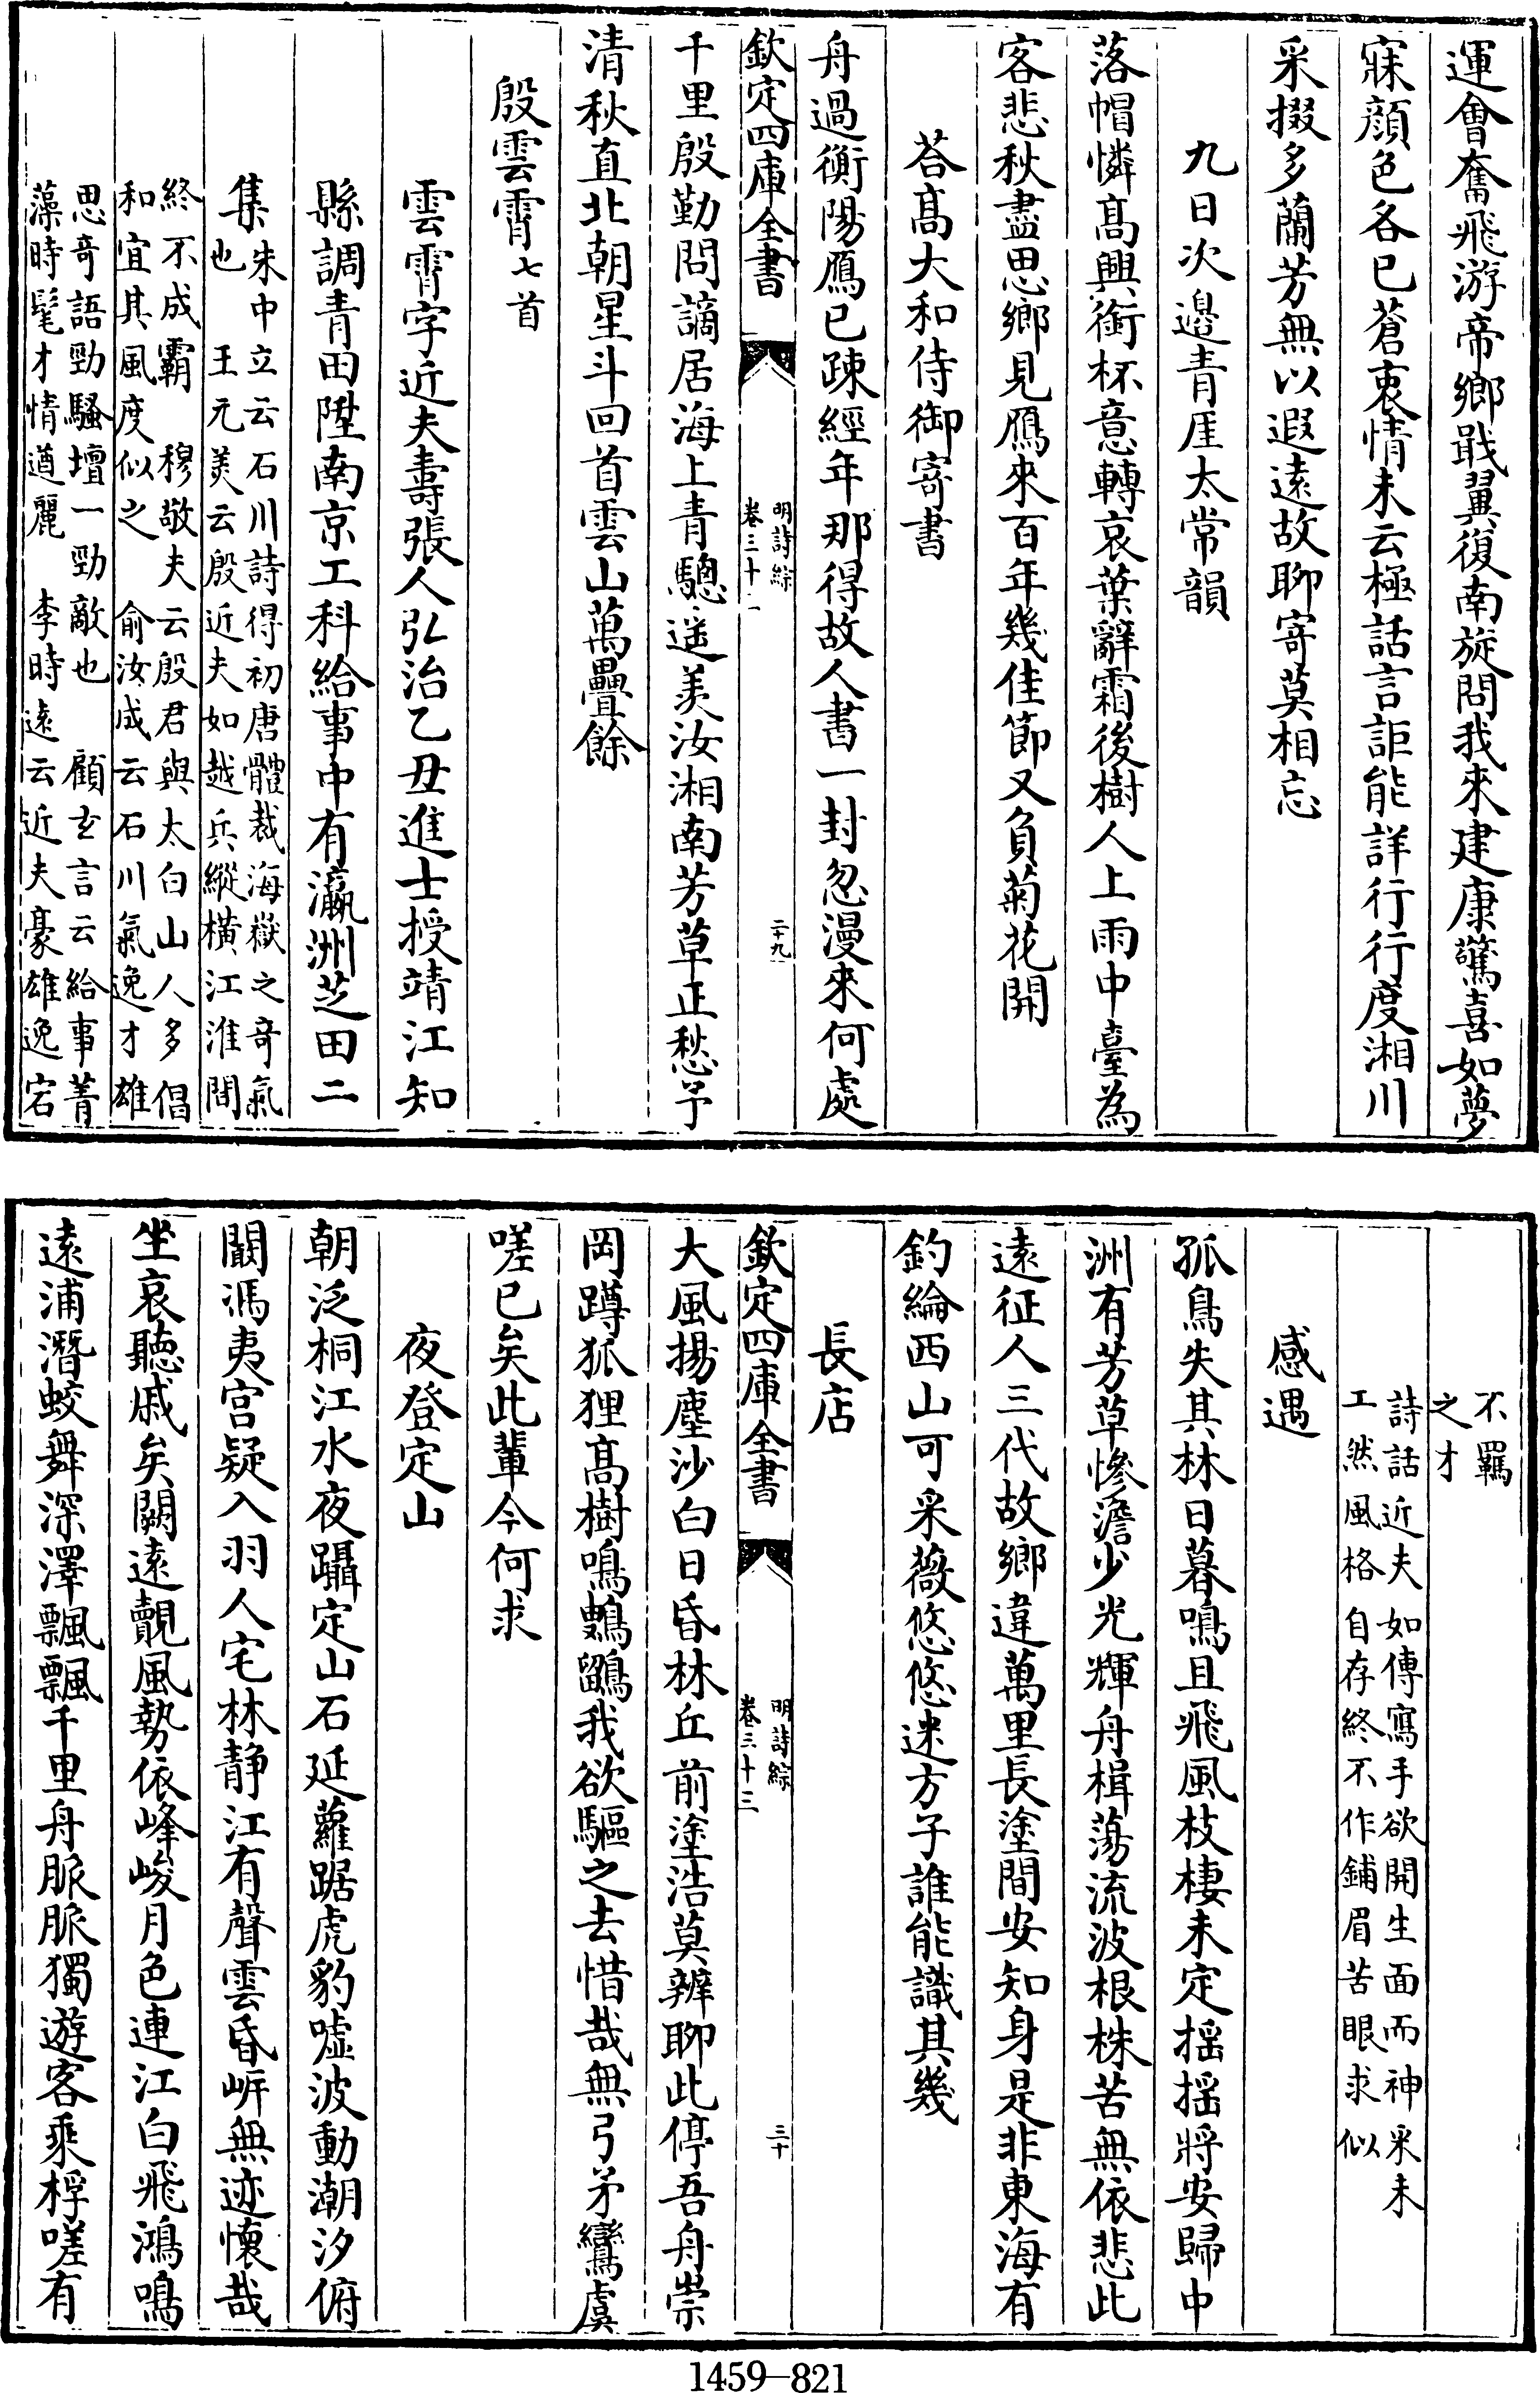 運會奮飛游帝鄉戢翼復南旋問我來建康驚喜如夢
寐顔色各已蒼衷情未云極話言詎能詳行行度湘川
采掇多蘭芳無以遐遠故聊寄莫相忘
九日次邉青厓太常韻
落帽憐髙興銜杯意轉哀葉辭霜後樹人上雨中臺為
客悲秋盡思鄉見鴈來百年幾佳節又負菊花開
荅髙大和侍御寄書
舟過衡陽鴈已疎經年那得故人書一封忽漫來何處
欽定四庫全書
明詩綜
卷三十
二十九
千里殷勤問謫居海上青驄遥羨汝湘南芳草正愁予
清秋直北朝星斗回首雲山萬疊餘
殷雲霄七首
雲霄字近夫壽張人弘治乙丑進士授靖江知
縣調青田陞南京工科給事中有瀛洲芝田二
集
朱中立云石川詩得初唐體裁海嶽之奇氣
也 王元美云殷近夫如越兵縱橫江淮間
終不成霸 穆敬夫云殷君與太白山人多倡
和宜其風度似之 俞汝成云石川氣逸才雄
思奇語勁騷壇一勁敵也 顧玄言云給事菁
藻時髦才情遒麗 李時遠云近夫豪雄逸宕
不羈
之才
詩話近夫如傳寫手欲開生面而神采未
工然風格自存終不作鋪眉苦眼求似
感遇
孤鳥失其林日暮鳴且飛風枝棲未定揺揺將安歸中
洲有芳草慘澹少光輝舟楫蕩流波根株苦無依悲此
遠征人三代故鄉違萬里長塗間安知身是非東海有
釣綸西山可采薇悠悠迷方子誰能識其幾
長店
欽定四庫全書
明詩綜
卷三十三
三十
大風揚塵沙白日昏林丘前塗浩莫辨聊此停吾舟崇
岡蹲狐狸髙樹鳴鵂鶹我欲驅之去惜哉無弓矛鸞虞
嗟已矣此輩今何求
夜登定山
朝泛桐江水夜躡定山石延蘿踞虎豹嘘波動潮汐俯
闞馮夷宫疑入羽人宅林静江有聲雲昏㟁無迹懷哉
坐哀聽戚矣闕遠覿風勢依峰峻月色連江白飛鴻鳴
遠浦潛蛟舞深澤飄飄千里舟脈脈獨遊客乘桴嗟有
1459—821